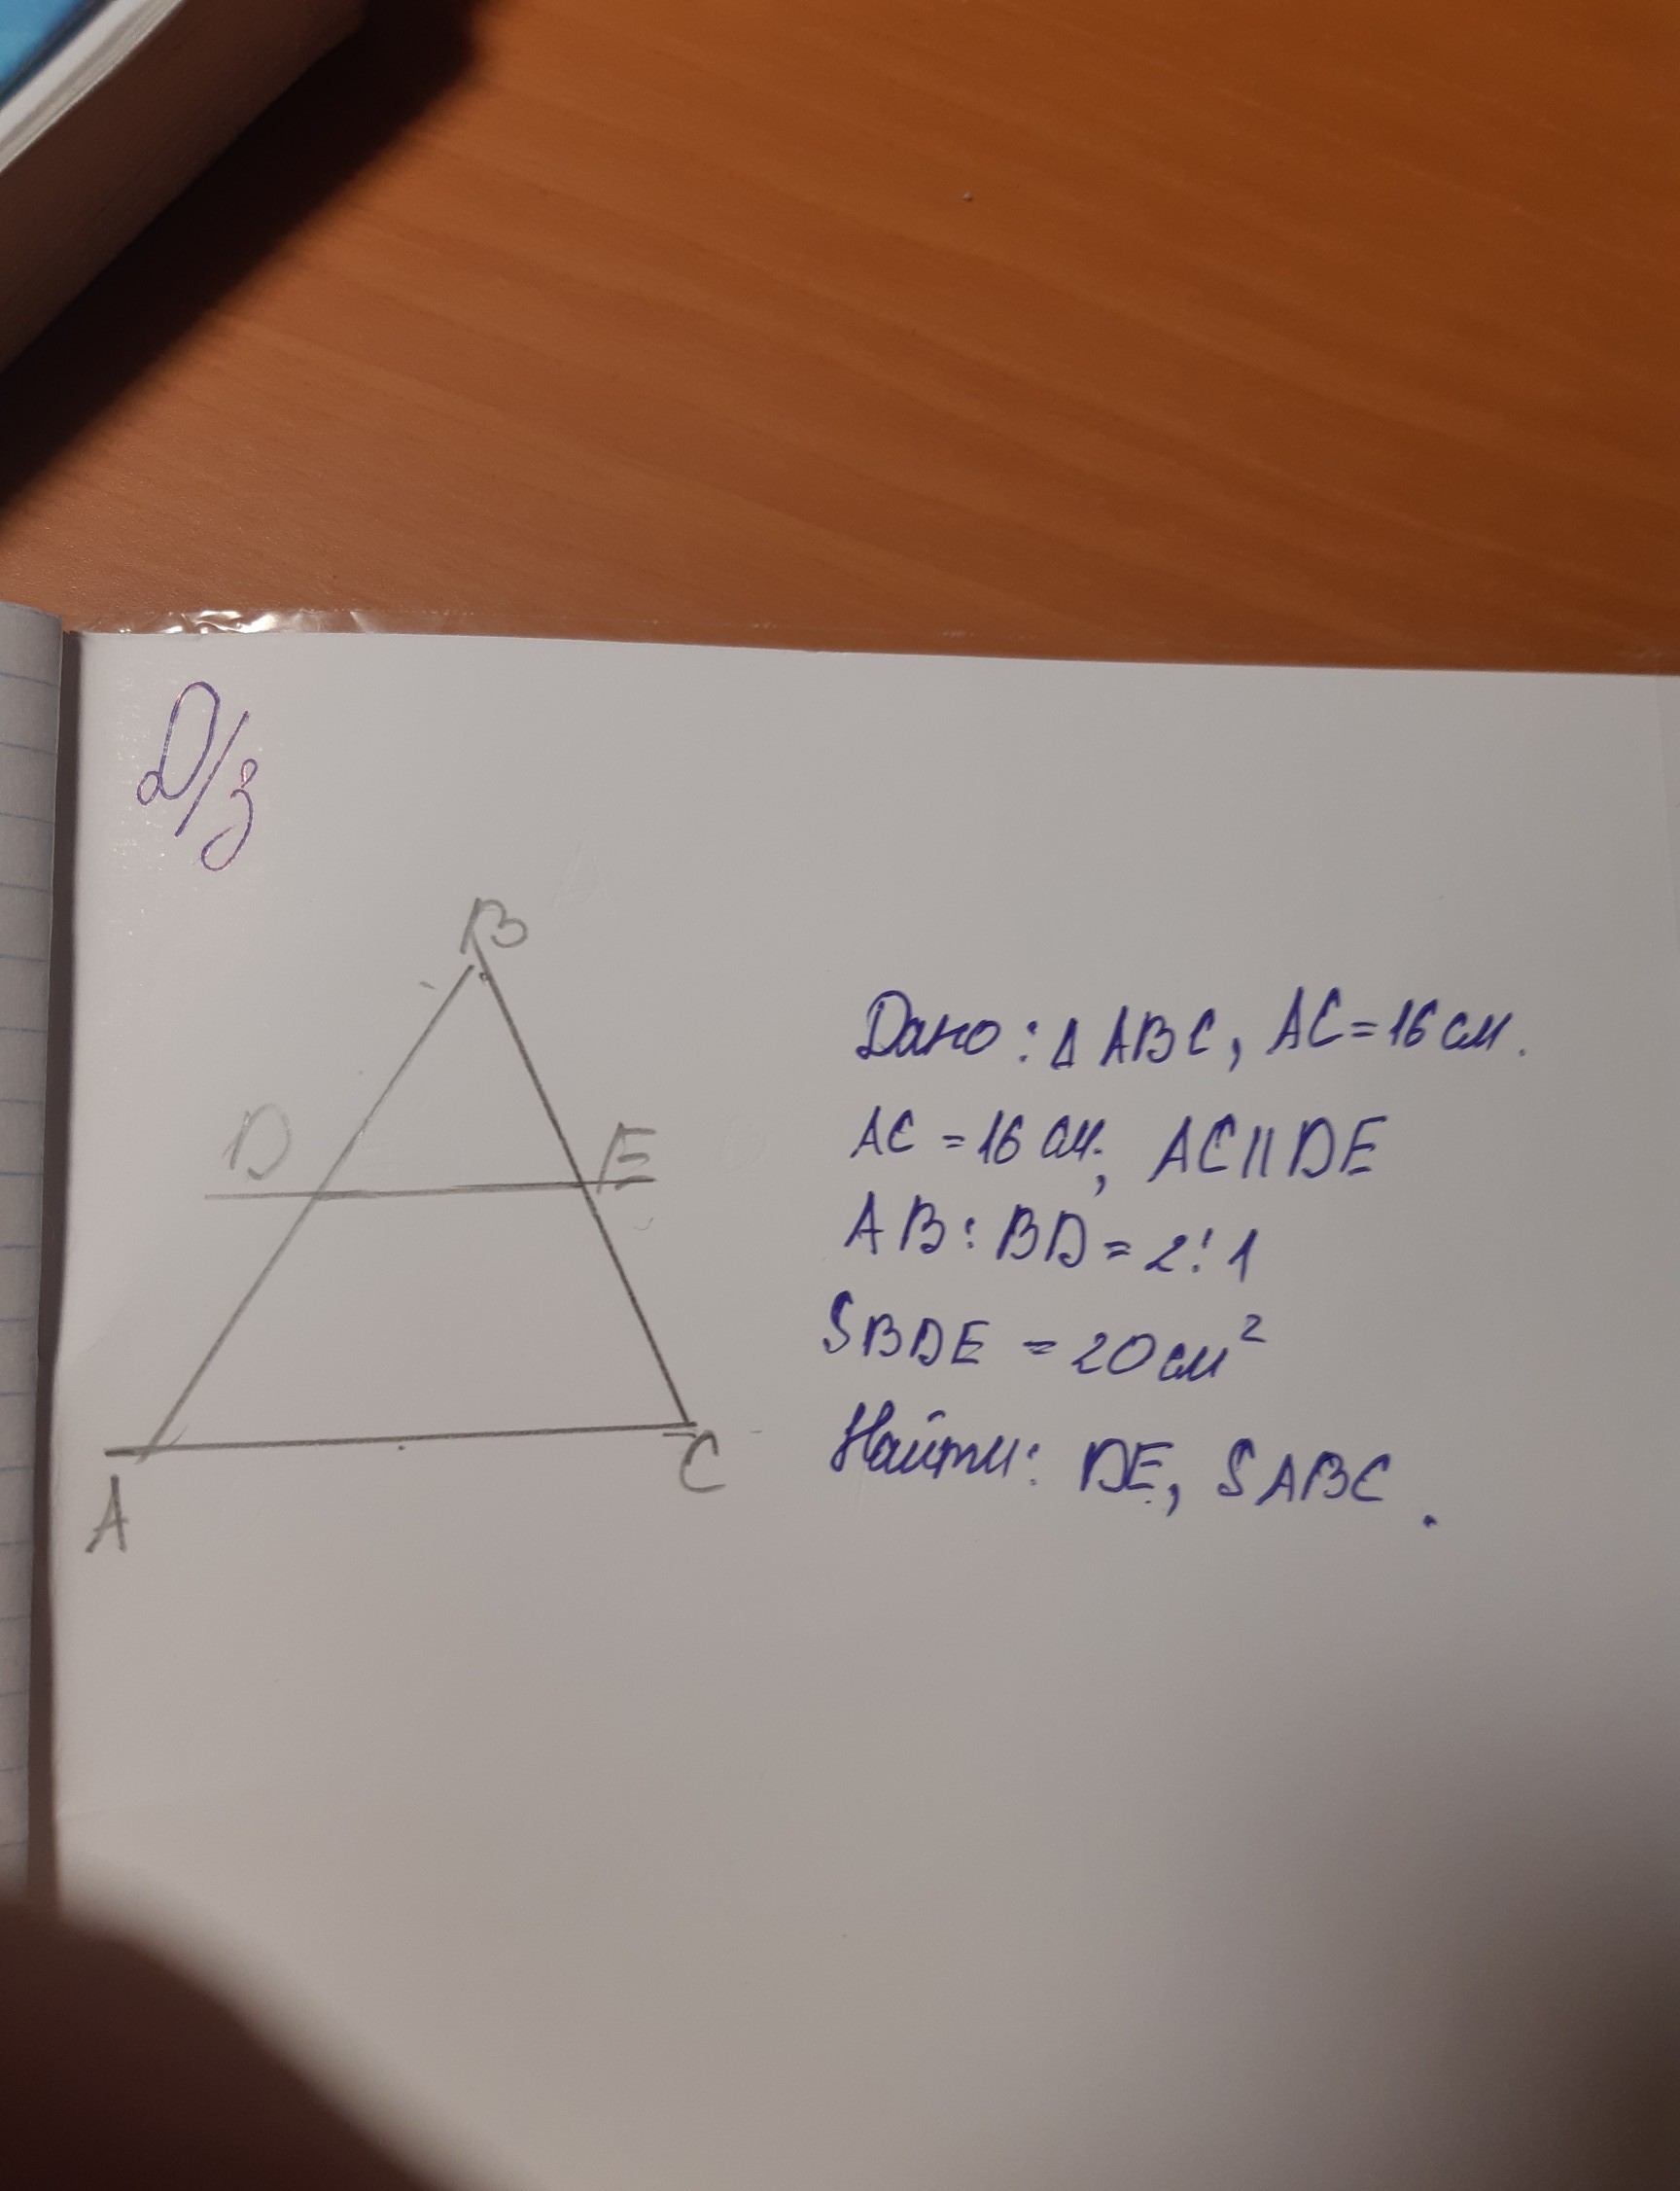 Д/з
B
D
E
A
C
Дано: Δ ABC, AC = 16 см.
AC = 16 см; AC || DE
AB : BD = 2 : 1
SBDE = 20 см²
Найти: DE, SABC.